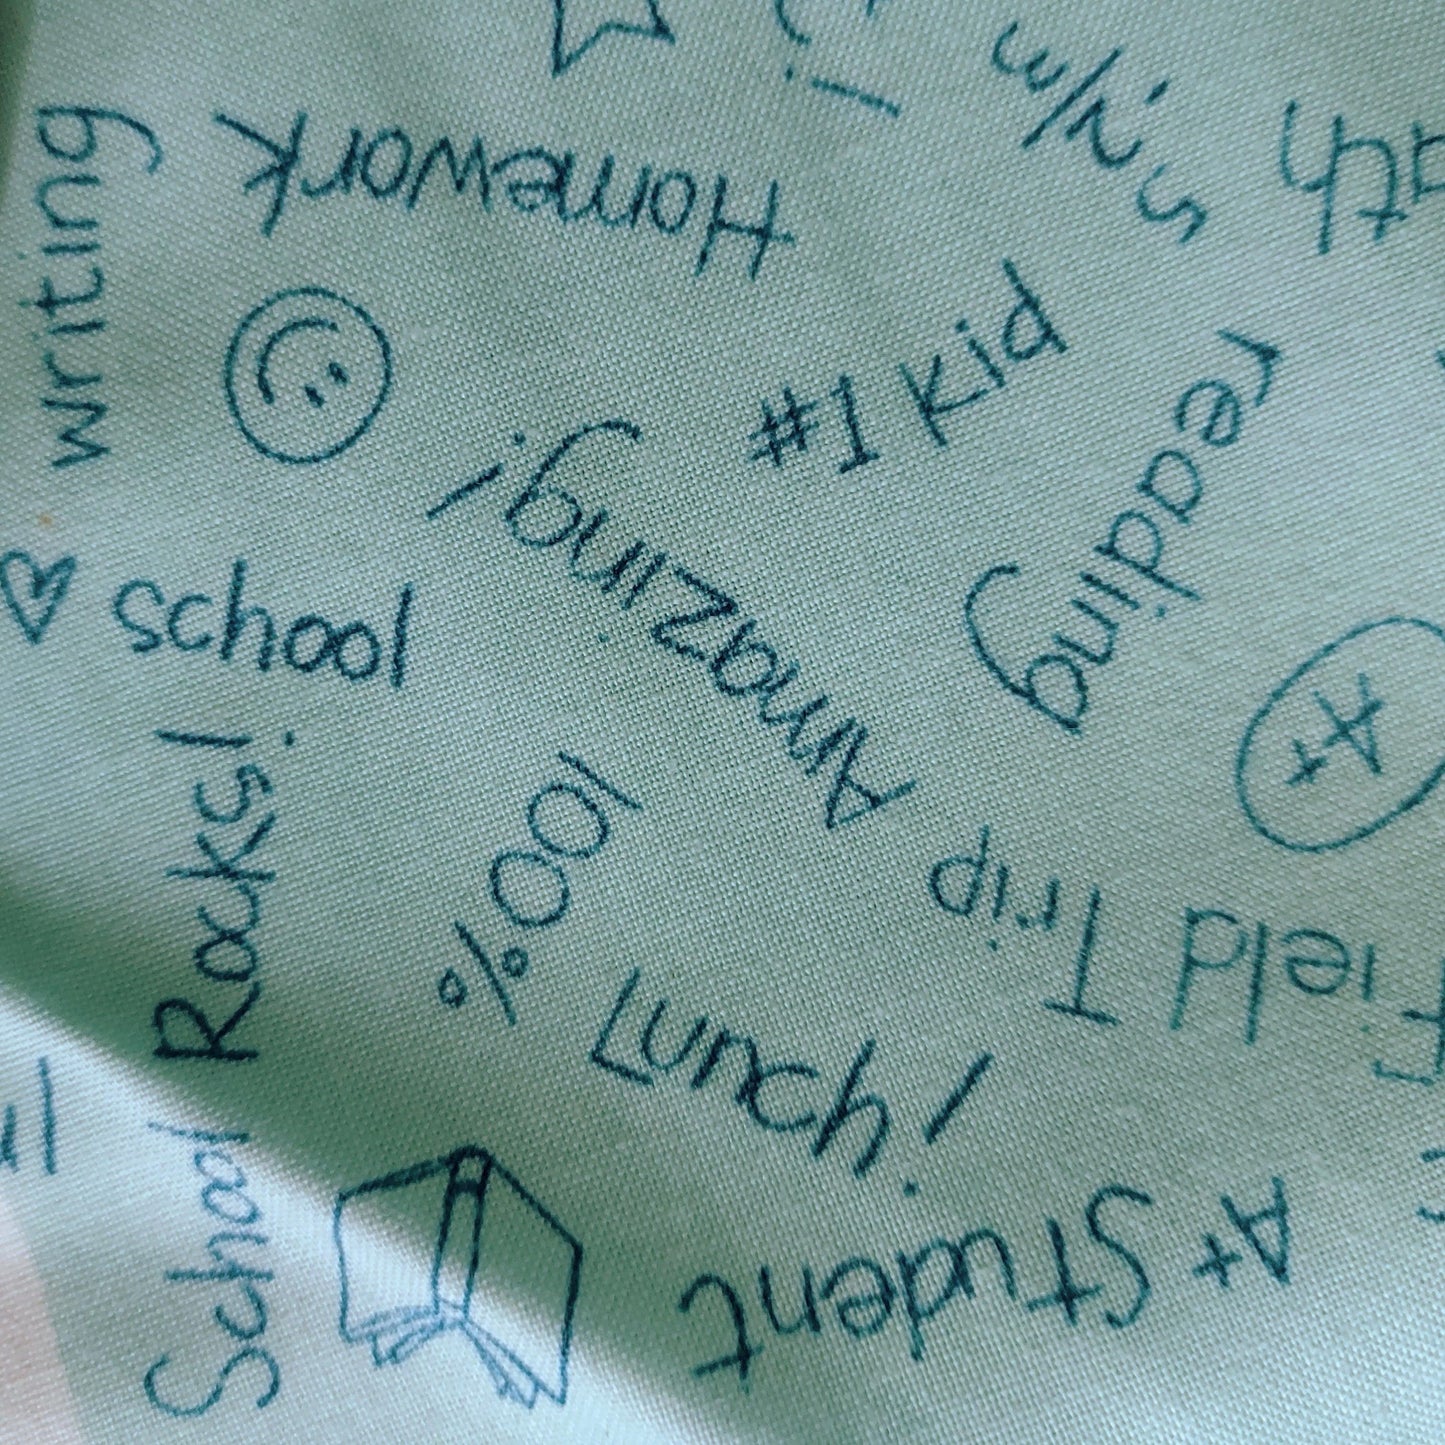 writing
Homework
#1 Kid
reading
Amazing!
school
School Rocks!
100%
Lunch!
A+
Field Trip
A+ Student